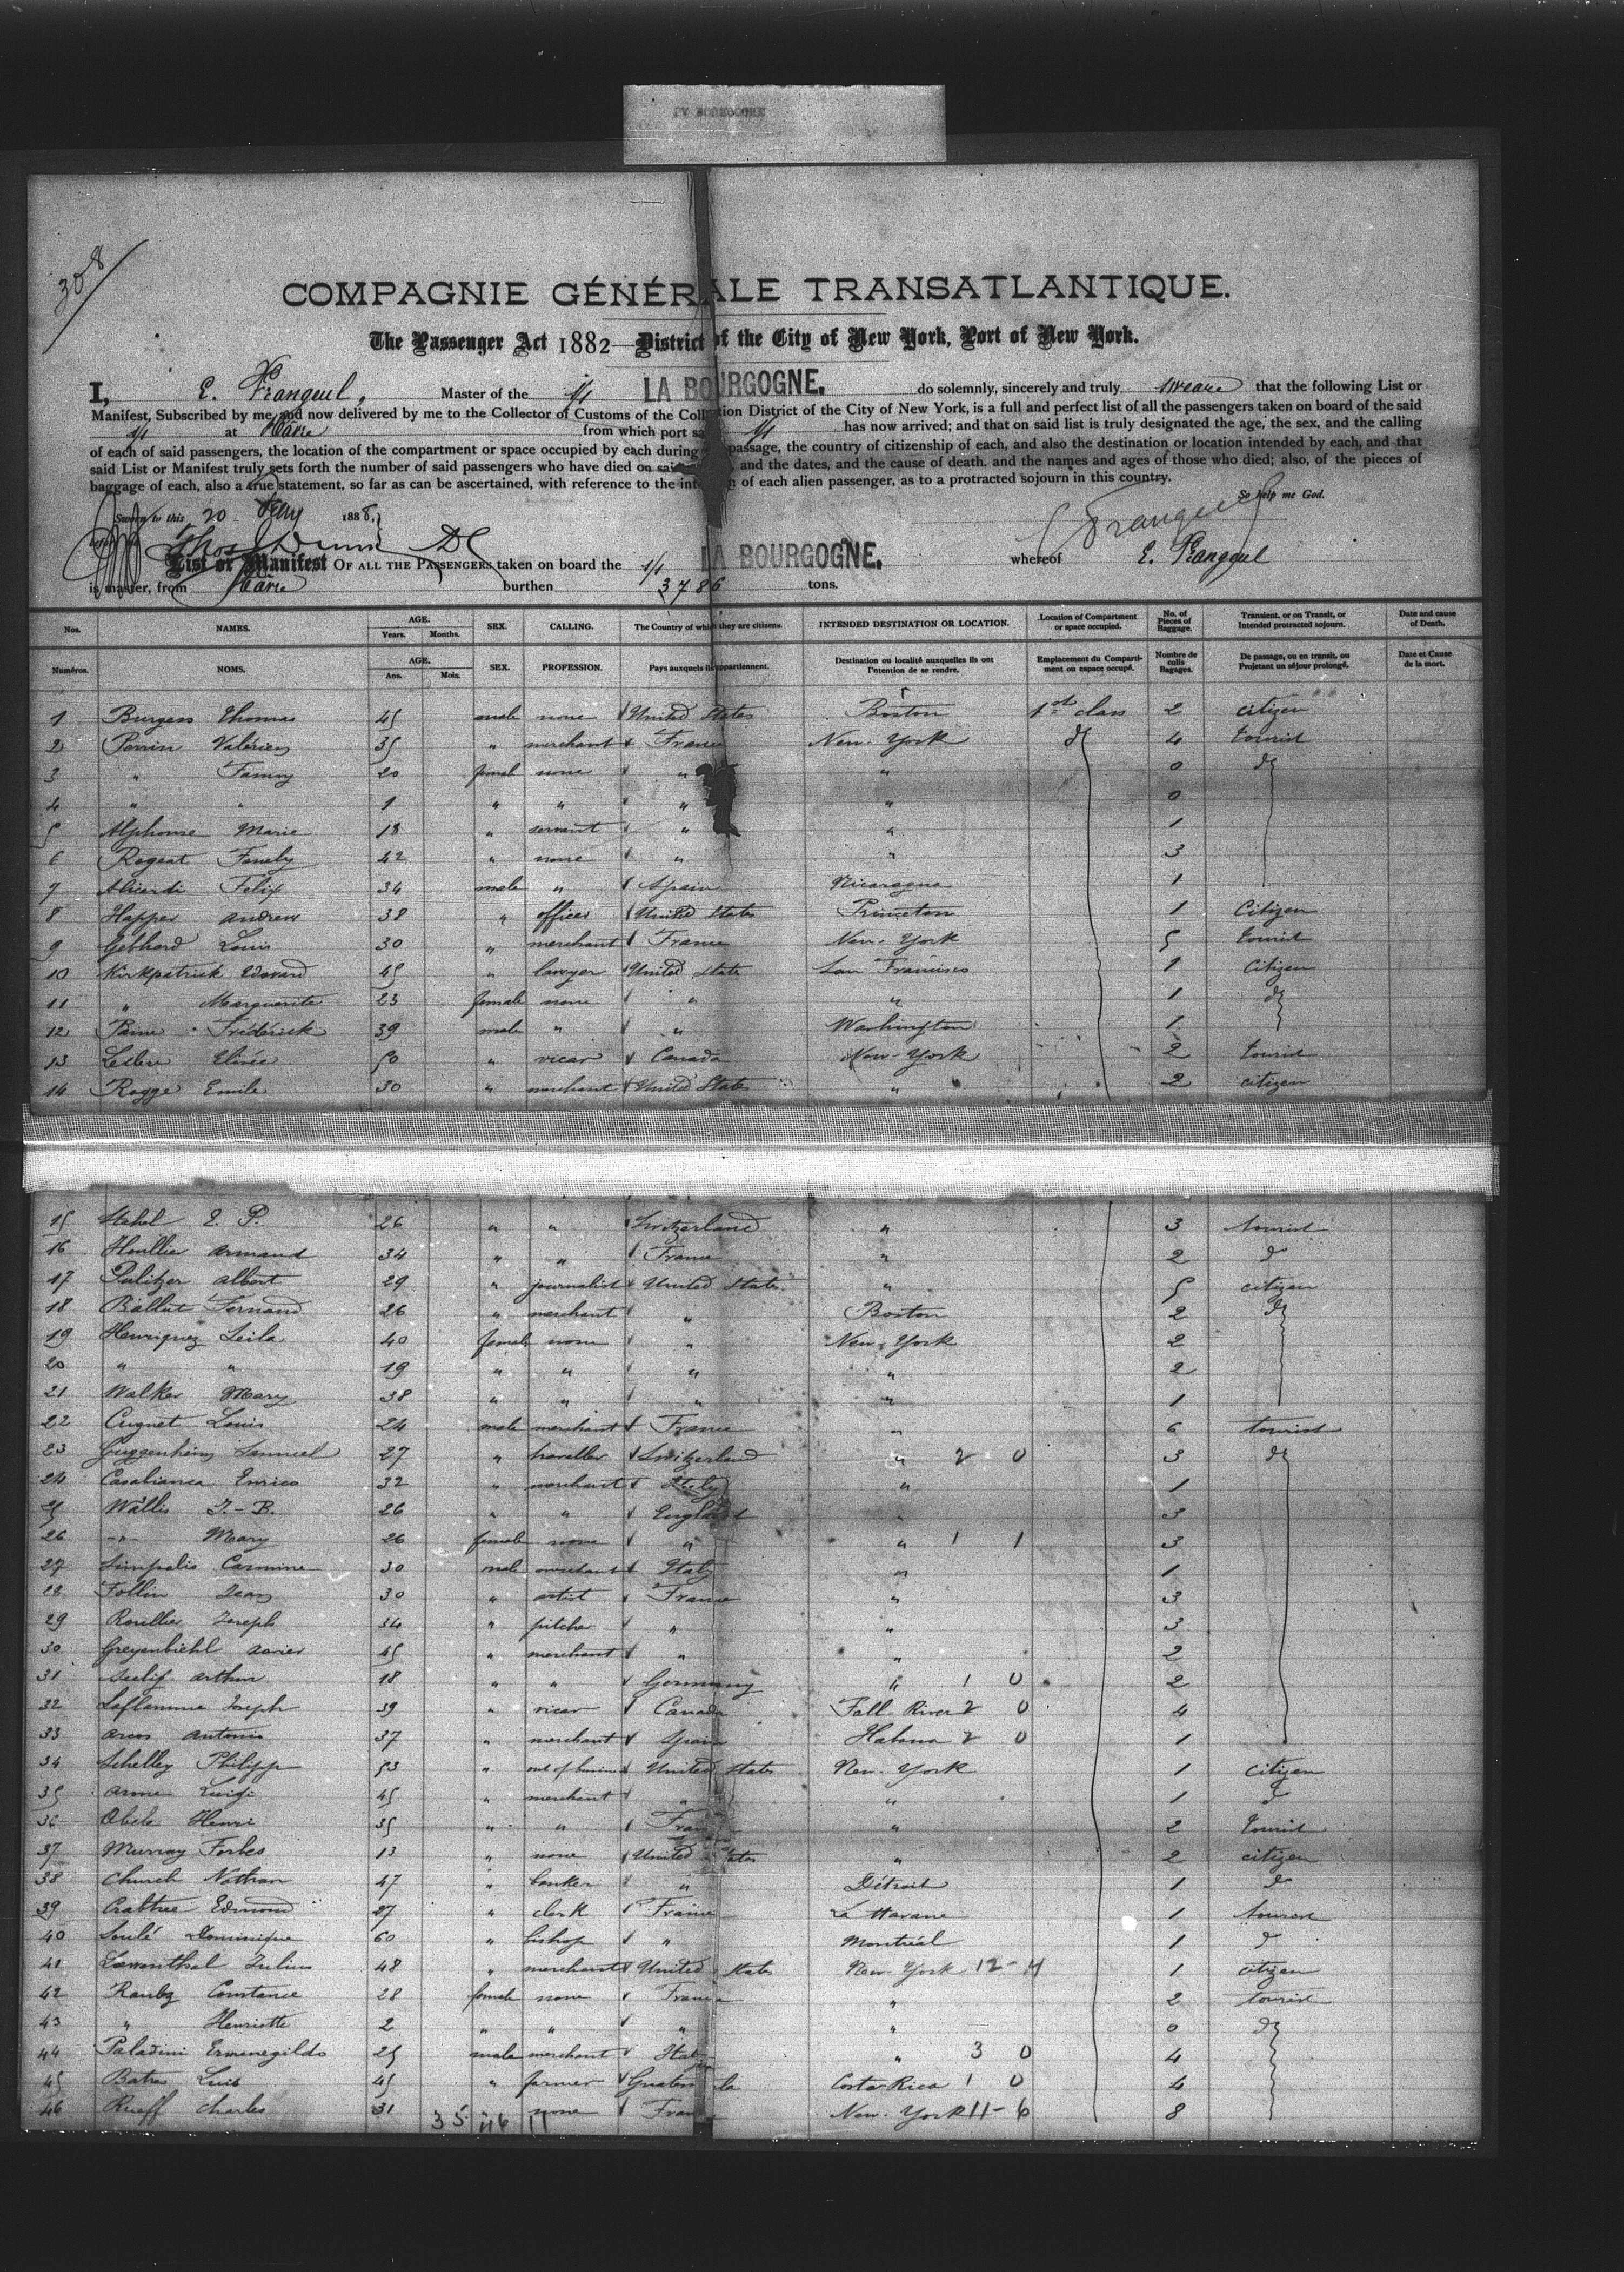 PV BOURGOGNE
308
COMPAGNIE GÉNÉRALE TRANSATLANTIQUE.
The Passenger Act 1882 District of the City of New York, Port of New York.
I, E. Frangeul, Master of the s/s LA BOURGOGNE. do solemnly, sincerely and truly swear that the following List or
Manifest, Subscribed by me, and now delivered by me to the Collector of Customs of the Collection District of the City of New York, is a full and perfect list of all the passengers taken on board of the said
s/s at Havre from which port said s/s has now arrived; and that on said list is truly designated the age, the sex, and the calling
of each of said passengers, the location of the compartment or space occupied by each during passage, the country of citizenship of each, and also the destination or location intended by each, and that
said List or Manifest truly sets forth the number of said passengers who have died on said and the dates, and the cause of death, and the names and ages of those who died; also, of the pieces of
baggage of each, also a true statement, so far as can be ascertained, with reference to the intention of each alien passenger, as to a protracted sojourn in this country.
So help me God.
Sworn to this 20 1888.
Frangeul
List or Manifest OF ALL THE PASSENGERS taken on board the s/s LA BOURGOGNE. whereof E. Frangeul
is master, from Havre burthen 3786 tons.
Nos. NAMES. AGE. Years. Months. SEX. CALLING. The Country of which they are citizens. INTENDED DESTINATION OR LOCATION. Location of Compartment or space occupied. No. of Pieces of Baggage. Transient, or on Transit, or Intended protracted sojourn. Date and cause of Death.
Numéros. NOMS. AGE. Ans. Mois. SEX. PROFESSION. Pays auxquels ils appartiennent. Destination ou localité auxquelles ils ont l'intention de se rendre. Emplacement du Compartiment ou espace occupé. Nombre de colis Bagages. De passage, ou en transit, ou Projetant un séjour prolongé. Date et Cause de la mort.
1 Burgess Thomas 45 male none United States Boston 1st class 2 citizen
2 Perrin Valérien 35 " merchant France New-York do 4 tourist
3 " Fanny 20 female none " " 0 do
4 " " 1 " " " " 0
5 Alphonse Marie 18 " servant " " 1
6 Rogeat 42 " none " " 3
7 Felix 34 male " Spain Nicaragua 1
8 Happer Andrew 38 " officer United States Princeton 1 Citizen
9 Gebhard Louis 30 " merchant France New-York 5 tourist
10 Kirkpatrick Edward 45 " lawyer United States San Francisco 1 Citizen
11 " Marguerite 23 female none " " 1 do
12 Paine Frédérick 39 male " " Washington 1
13 50 " vicar Canada New-York 2 tourist
14 Rogge Emile 30 " merchant United States " 2 citizen
15 Stahel E. P. 26 " " Switzerland " 3 tourist
16 Houllier Armand 34 " " France " 2 do
17 Pulitzer Albert 29 " journalist United States " 5 citizen
18 Ballut Fernand 26 " merchant " Boston 2 do
19 Henriquez Leila 40 female none " New-York 2
20 " " 19 " " " " 2
21 Walker Mary 38 " " " " 1
22 Cugnet Louis 24 male merchant France " 6 tourist
23 Guggenheim Samuel 27 " traveller Switzerland " 2 0 3 do
24 Casabianca Enrico 32 " merchant Italy " 1
25 Wallis J.-B. 26 " " England " 3
26 -"- Mary 26 female none " " 1 1 3
27 Carmine 30 male merchant Italy " 1
28 Follin Jean 30 " artist France " 3
29 Roullier Joseph 34 " pitcher " " 3
30 Greyenbiehl Xavier 45 " merchant " " 2
31 Arthur 18 " " Germany " 1 0 2
32 Laflamme Joseph 39 " vicar Canada Fall River 2 0 4
33 Arcos Antonio 37 " merchant Spain Habana 2 0 1
34 Schelley Philipp 53 " out of business United States New-York 1 Citizen
35 Arone Luigi 45 " merchant " " 1 do
36 Abele Henri 35 " " France " 2 tourist
37 Murray Forbes 13 " none United States " 2 citizen
38 Church Nathan 47 " banker " Détroit 1 do
39 Crabtree Edmond 27 " clerk France La Havane 1 tourist
40 Soulé Dominique 60 " bishop " Montréal 1 do
41 Lowenthal Julius 48 " merchant United States New-York 12-4 1 citizen
42 Constance 28 female none France " 2 tourist
43 " Henriette 2 " " " " 0 do
44 Paladini Ermenegildo 25 male merchant Italy " 3 0 4
45 Batres Luis 45 " farmer Guatemala Costa Rica 1 0 4
46 Rueff Charles 31 none France New-York 11-6 8
35 46 11